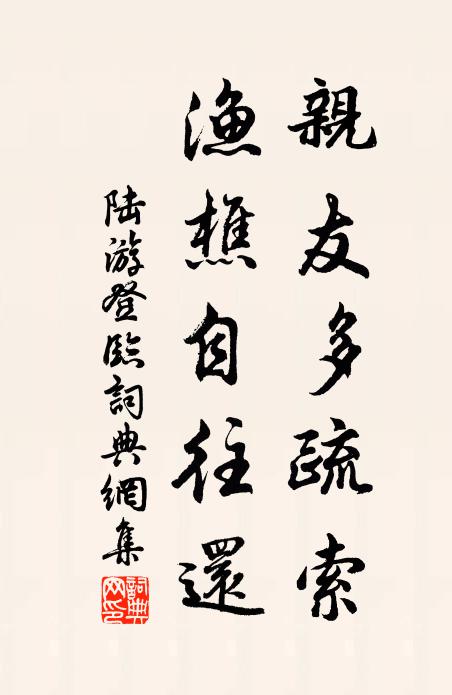 親友多疏索
漁樵自往還
陸游登臨詞典網集
詞典网印